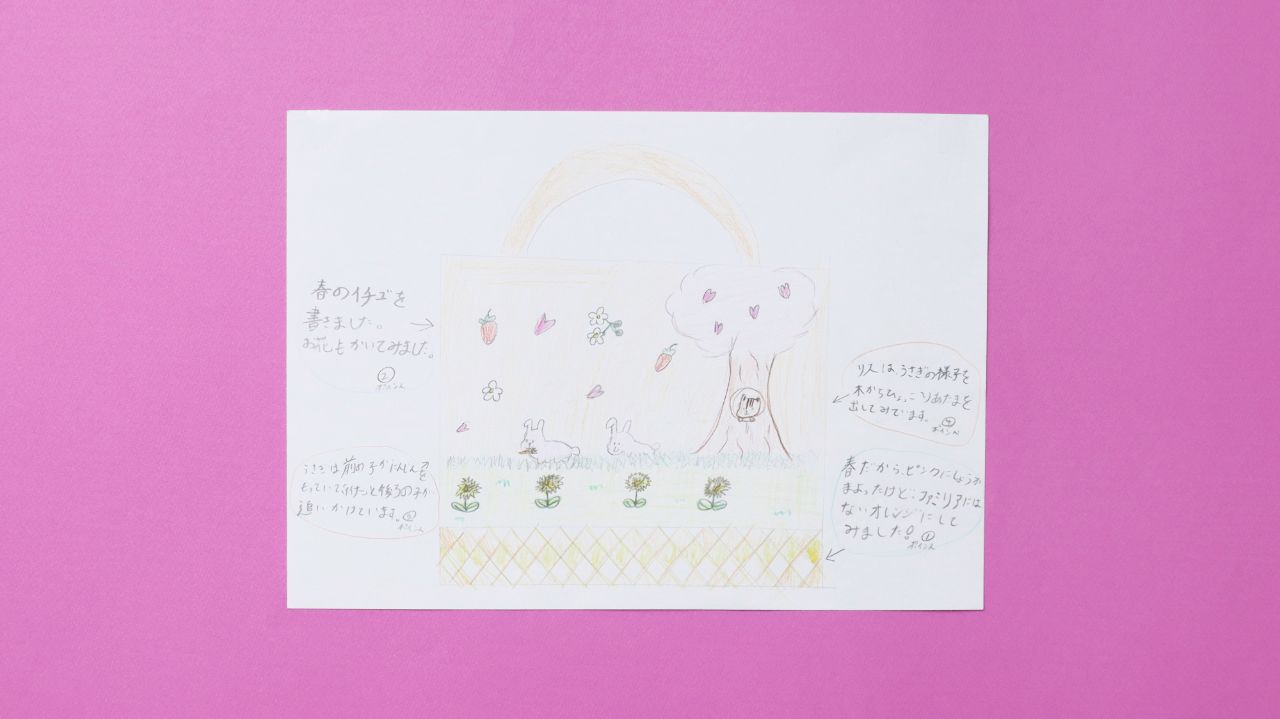 春のイチゴを
書きました。
お花もかいてみました。
②
ポイント
うさぎは前の子がにんじんを
もっていて
後ろの子が
追いかけています。③
ポイント
リスは、うさぎの様子を
木からひょっこりあたまを
出してみています。④
ポイント
春だから、ピンクにしようか
まよったけど…ファミリアには
ないオレンジにして
みました！①
ポイント